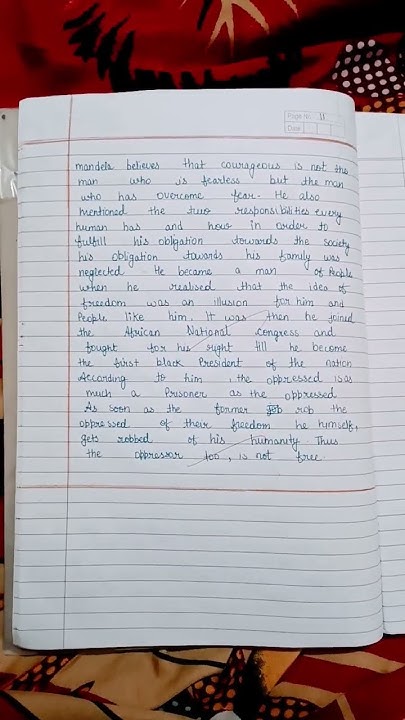 Page No. 11
Date
mandela believes that courageous is not the
man who is fearless but the man
who has overcome fear. He also
mentioned the two responsibilities every
human has and how in order to
fulfill his oblgation towards the society
his obligation towards his family was
neglected. He became a man of People
when he realised that the idea of
freedom was an illusion for him and
People like him. It was then he joined
the African National Congress and
fought for his right till he become
the first black President of the nation
According to him, the oppressed is as
much a Prisoner as the oppressed
As soon as the former rob the
oppressed of their freedom he himself,
gets robbed of his humanity. Thus
the oppressor too, is not free.